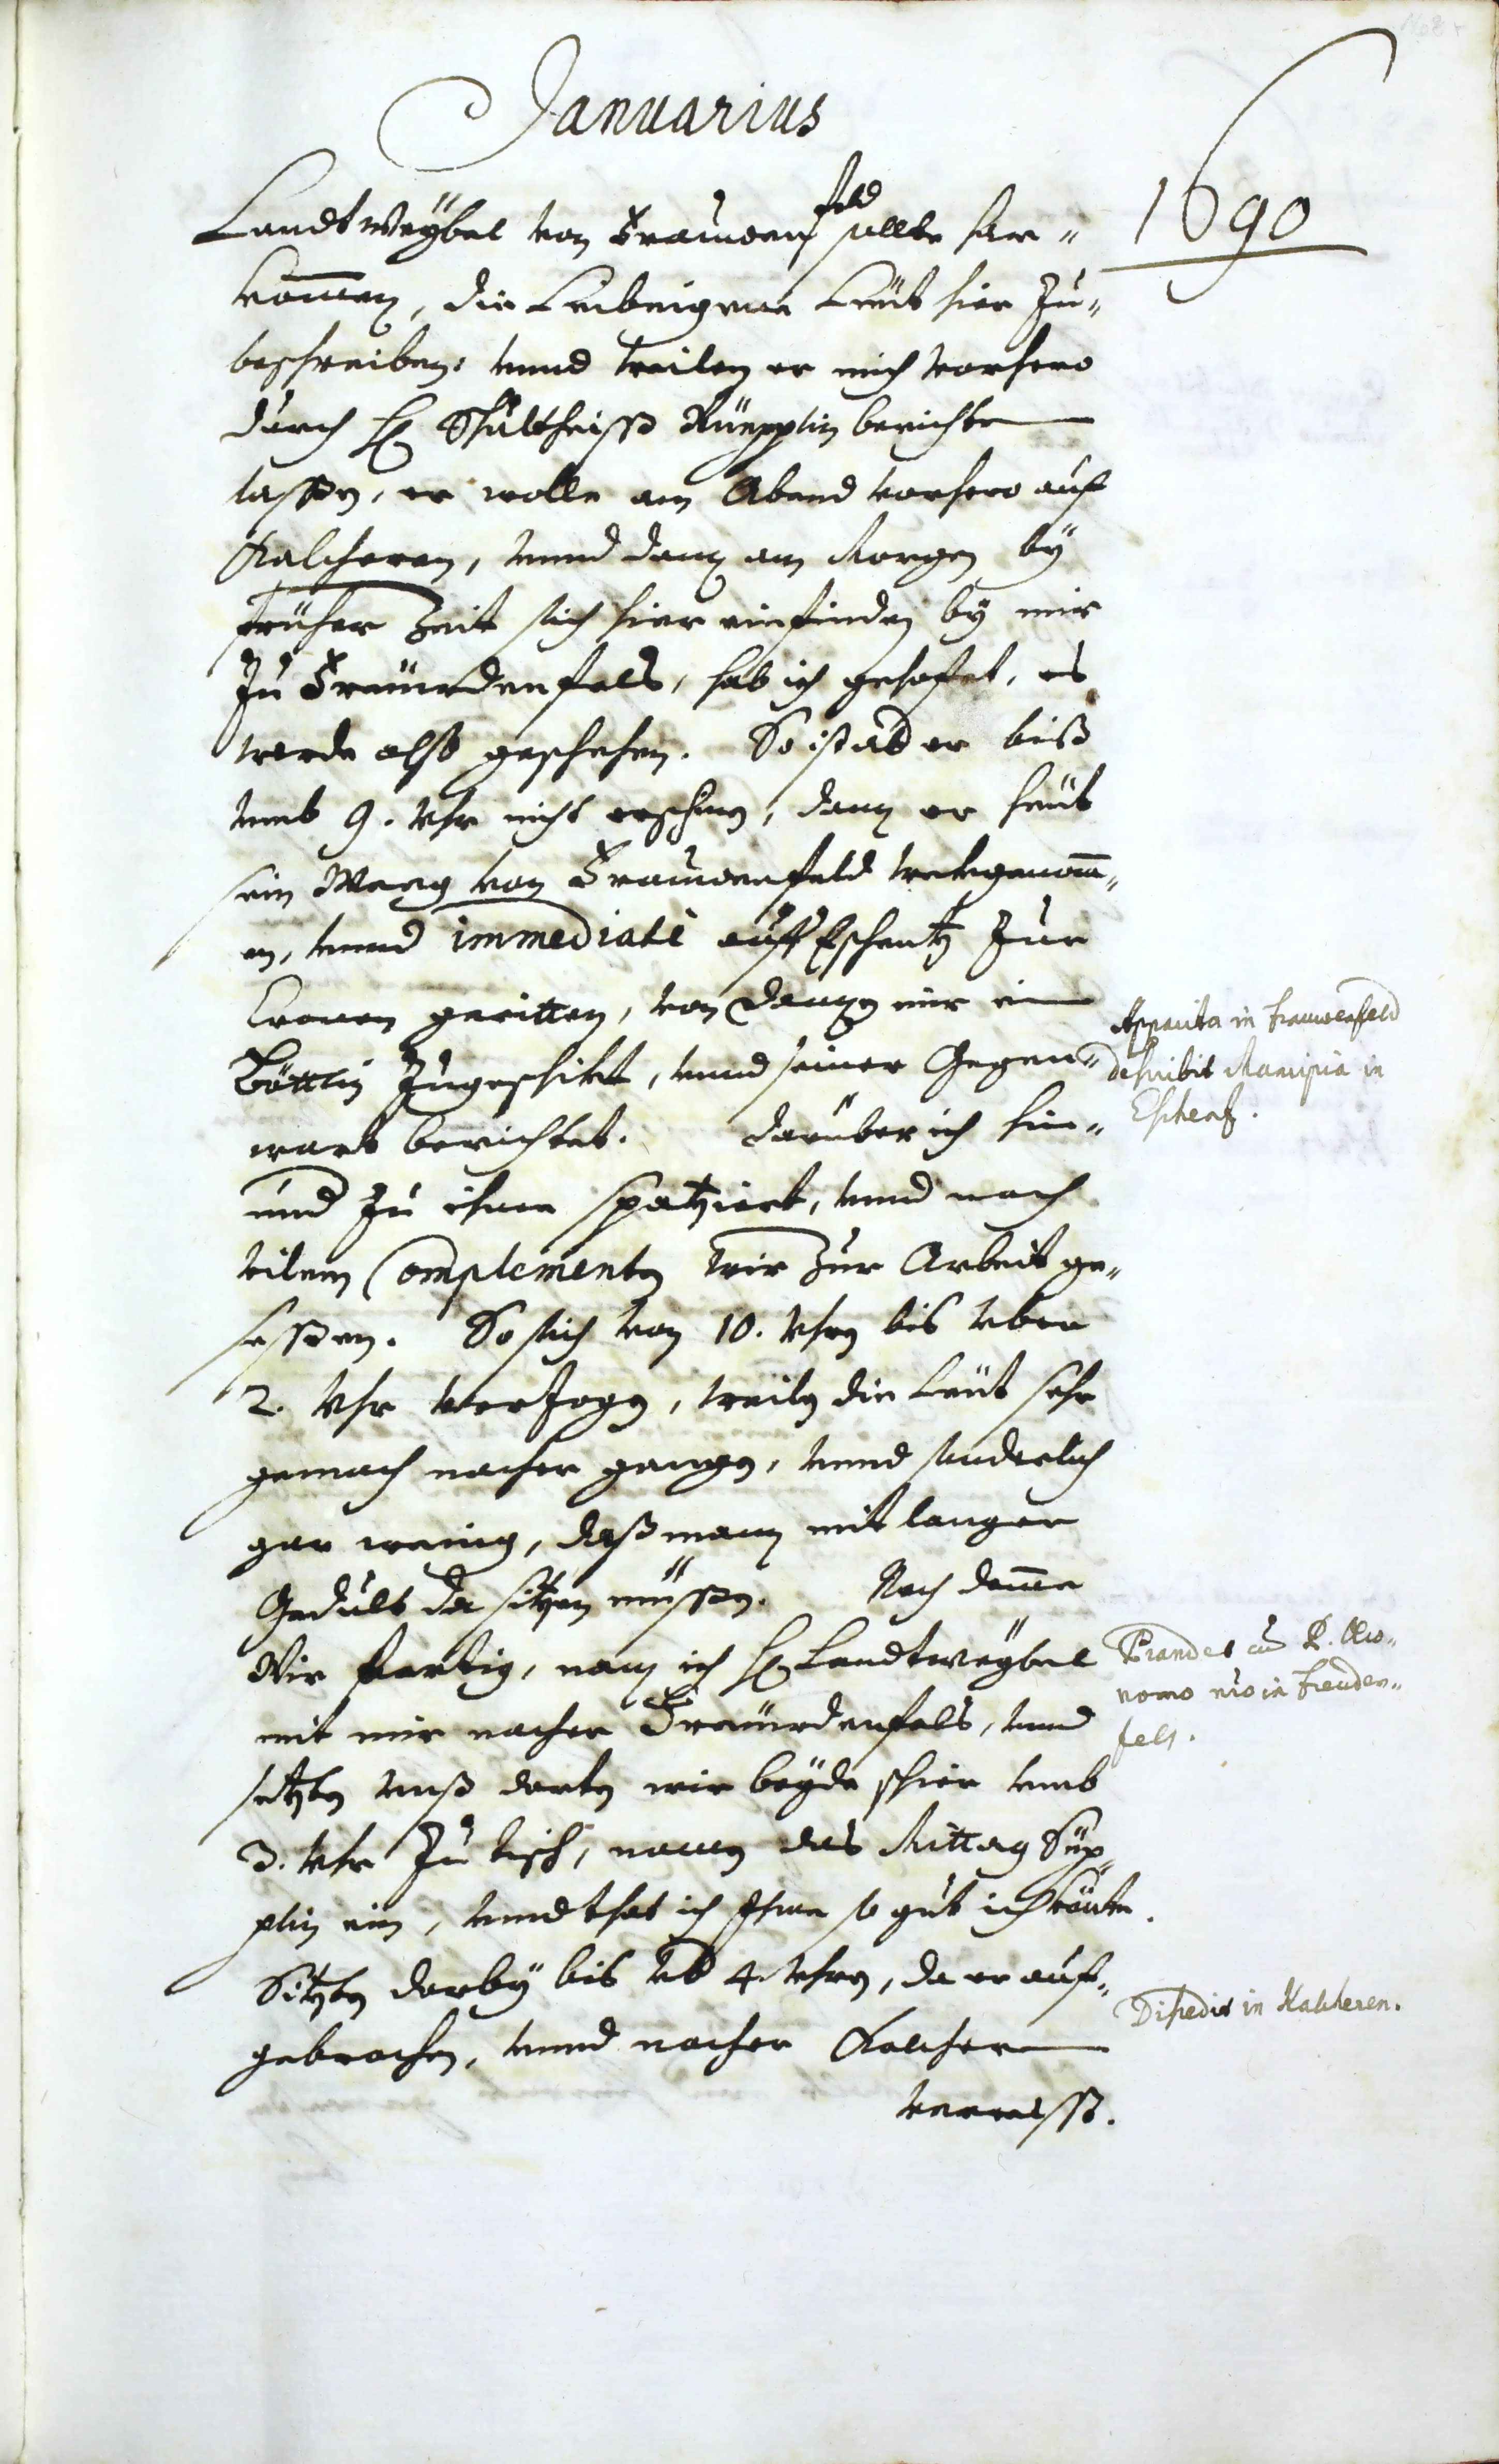 Januarius
1690
Landtweÿbel von Frauwenfeld sollte har„
kommen, die Leibeigene Leüt hier zu„
beschreiben. vnnd weilen er mich vorhero
durch H. Schultheiss Rüepplin berichten
lassen, er wolle am Abend vorhero auf
Kalcheren, vnnd dann am Morgen bÿ
früher Zeit sich hier einfinden bÿ mir
zu Freüwdenfels, hab ich gehoffet, es
werde also geschehen. So ist aber er biss
vmb 9. Vhr nicht erschinen, dann er heüt
sein Weeg von Frauwenfeld vorgenomm„
en, vnnd immediatè auff Eschentz zur
Cronen geritten, von dannen mir ein
Böttlin zugeschikt, vnnd seiner Gegen„
wart berichtet. darüber ich hin„
und zu ihme spatziert, vnnd nach
vilem Complementen wir zur Arbeit ge„
sessen. So sich von 10. Vhren bis vber
2. Vhr verzogen, weilen die Leüt sehr
gemach nacher gangen, vnnd sonderlich
gar wenig, dass mann mit langer
Gedult da sitzen müssen. Nach deme
Wir fertig, nam ich H. Landtweÿbel
mit mir nacher Freüwdenfels, vnnd
setzten vnss dorten wir beÿde schier vmb
3. Vhr zu tisch, namen das Mittag Süp„
plin ein, vnnd that ich Ihme so gut ich könte.
Sitzten darbÿ bis vmb 4. Vhren, da er auf„
gebrochen, vnnd nacher Kalcheren
verreisst.
Apparitor in Frauwenfeld
describit Mancipia in
Eschentz.
Prandet cum P. Oeco„
nomo nostro in Freuden„
fels.
Discedit in Kalcheren.